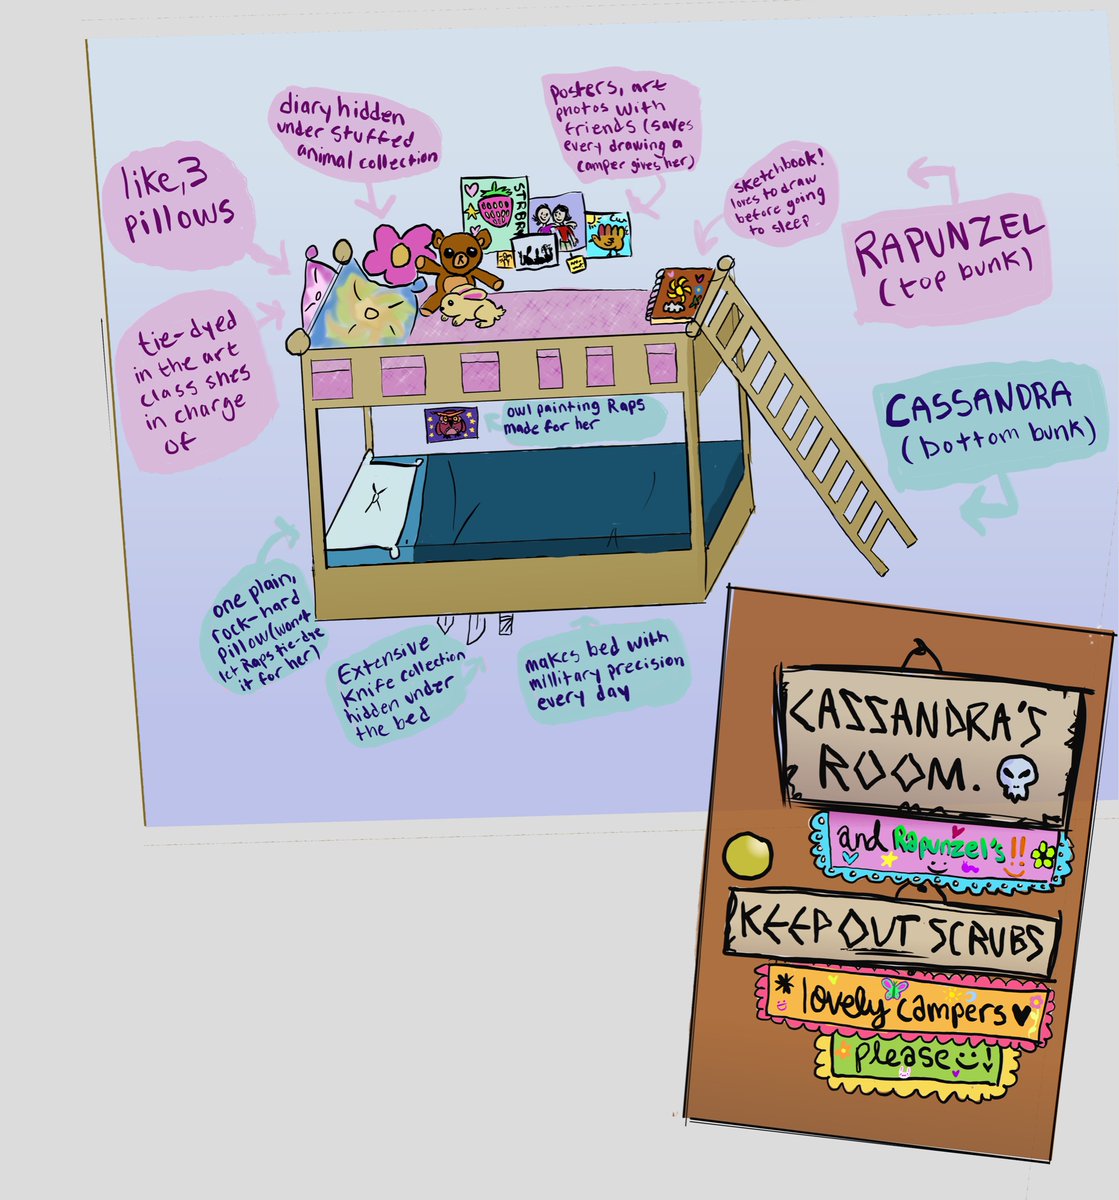 diary hidden
under stuffed
animal collection
posters, art
photos with
friends (saves
every drawing a
camper gives her)
like, 3
pillows
sketchbook!
loves to draw
before going
to sleep
RAPUNZEL
(top bunk)
tie-dyed
in the art
class shes
in charge
of
CASSANDRA
(bottom bunk)
owl painting Raps
made for her
one plain,
rock-hard
pillow (won't
let Raps tie-dye
it for her)
Extensive
knife collection
hidden under
the bed
makes bed with
millitary precision
every day
CASSANDRA'S
ROOM.
and Rapunzel's!!
KEEP OUT SCRUBS
*lovely campers
please !